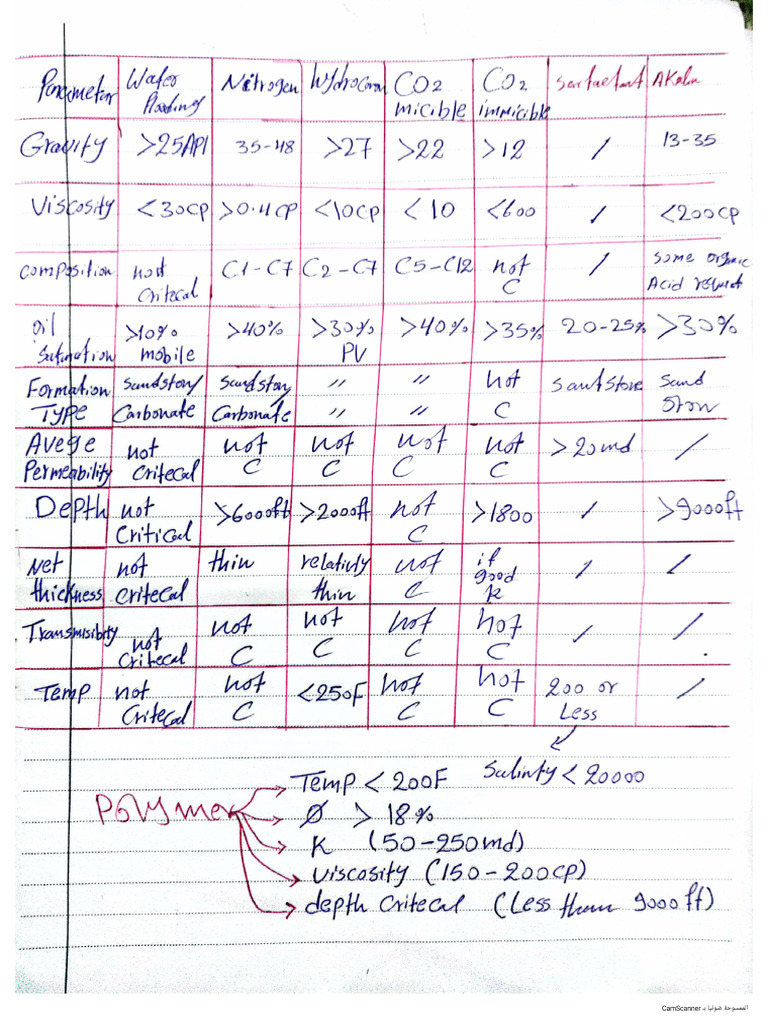 Parameter Water flooding Nitrogen Hydrocaron CO2 micible CO2 immicible Surfactant AKalin
Gravity >25API 35-48 >27 >22 >12 / 13-35
Viscosity <30cp >0.4cp <10cp <10 <600 / <200cp
Composition not critecal C1-C7 C2-C7 C5-C12 not C / some organic Acid
oil Saturation >10% mobile >40% >30% PV >40% >35% 20-25% >30%
Formation Type Sandstony/ Carbonate Sandstony Carbonate // // // // not C Santstore Sand Ston
Avege Permeability not critecal not C not C not C not C >20md /
Depth not Critical >6000ft >2000ft not C >1800 / >9000ft
Net thickness not critecal thin relativly thin not C if good k / /
Transmisibity not critecal not C not C not C not C / /
Temp not Critecal not C <250F not C not C 200 or Less /
Salinty < 20000
Polymer
Temp < 200F
Ø > 18%
K (50-250md)
Viscosity (150-200cp)
depth critecal (Less than 9000ft)
الممسوحة ضوئيا بـ CamScanner